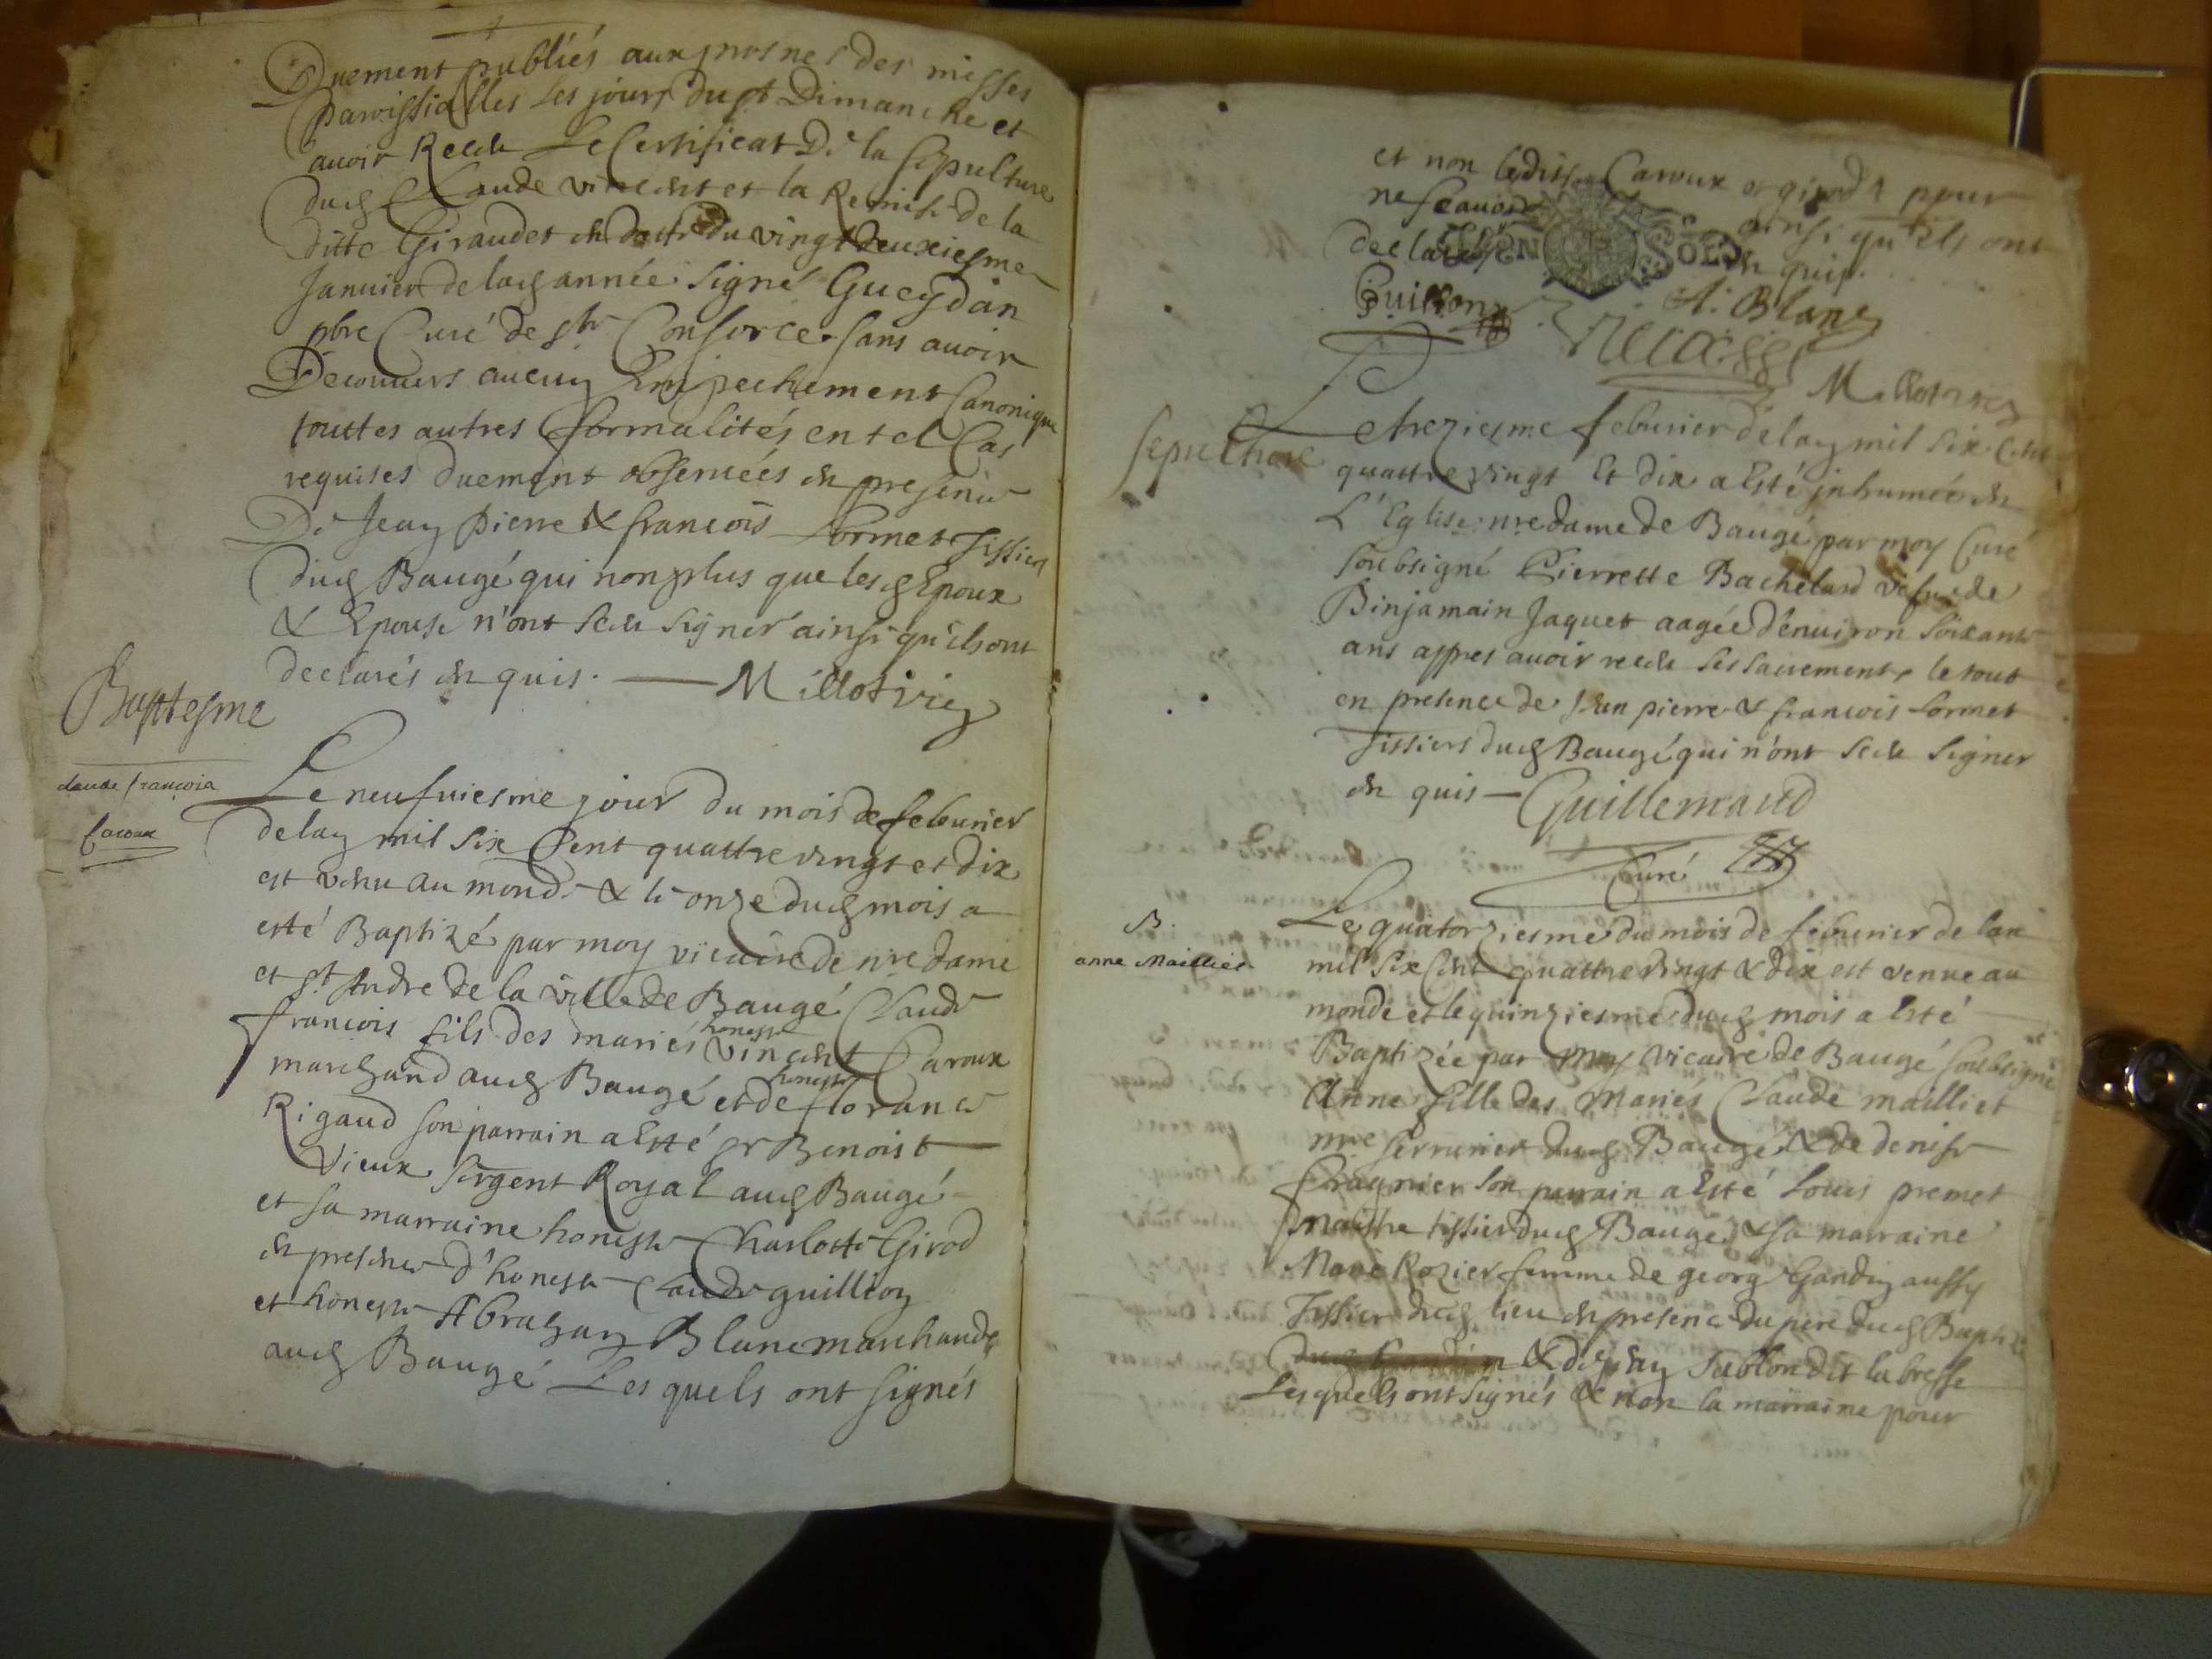 Duement publiés aux prosnes des messes
Paroissialles les jours du st Dimanche et
avoir Receu Le Certificat De la sepulture
dud Claude vincent et la Remise de la
ditte Giraudet en datte du vingt deuxiesme
Januier de lad année signé Gueydan
pbre Curé de ste Consorce sans avoir
Decouuers aucun Empechement Canonique
touttes autres formalités en tel Cas
requises duement obseruées en presence
De Jean Pierre & francois Lormet Tissier
dud Baugé qui non plus que lesd Epoux
& Epouse n'ont sceu signer ainsi qu'ils ont
declarés en quis. — Millot vic
Baptesme
claude francois
Caroux
Le neufuiesme jour du mois de feburier
de lan mil six Cent quattre vingt et dix
est venu au monde & le onze dud mois a
esté Baptizé par moy vicaire de nre dame
et st Andre de la ville de Baugé Claude
francois fils des mariés honeste vincent Caroux
marchand aud Baugé et de honeste florance
Rigaud son parrain a Esté sr Benoist
vieux sergent Royal aud Baugé
et sa marraine honeste Charlotte Girod
en presence d'honeste Claude guillion
et honeste Abraham Blanc marchands
aud Baugé Les quels ont signés
et non ledit Caroux et girod pour
ne scauoir ainsi qu'ils ont
declaré en quis.
Guillion A. Blanc
Millot vic
sepulture
Le treziesme feburier de lan mil six Cent
quattre vingt Et dix a Esté inhumée en
L'Eglise nre dame de Baugé par moy Curé
soubsigné Pierrette Bachelard vefue de
Binjamain Jaquet aagée d'enuiron soixante
ans appres auoir receu ses sacrements le tout
en presence de Jean pierre & francois Lormet
Tissiers dud Baugé qui n'ont sceu signer
en quis — Guillemaud
Curé
B.
anne Maillet
Le quatorziesme du mois de feburier de lan
mil six Cent quattre vingt & dix est venue au
monde et le quinziesme dud mois a Esté
Baptizée par moy vicaire de Baugé soubsigné
Anne fille des Mariés Claude mailliet
mre serrurier dud Baugé & de denise
Fragnier son parrain a Esté Louis premet
maistre tissier dud Baugé & sa marraine
Marie Rozier femme de george Gandin aussy
Tissier dud lieu en presence du pere dud Baptizé
& de Jean sablon dit la bresse
Lesquels ont signés & non la marraine pour